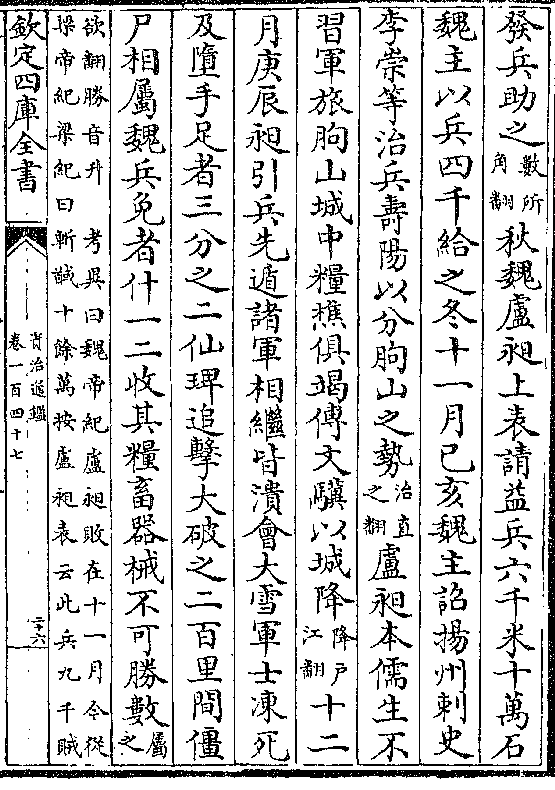 發兵助之數所角翻秋魏盧昶上表請益兵六千米十萬石
魏主以兵四千給之冬十一月己亥魏主詔揚州刺史
李崇等治兵壽陽以分朐山之勢治直之翻盧昶本儒生不
習軍旅朐山城中糧樵俱竭傅文驥以城降降戶江翻十二
月庚辰昶引兵先遁諸軍相繼皆潰會大雪軍士凍死
及墮手足者三分之二仙琕追擊大破之二百里間僵
尸相屬魏兵免者什一二收其糧畜器械不可勝數屬之
欲翻勝音升 考異曰魏帝紀盧昶敗在十一月今從
梁帝紀梁紀曰斬馘十餘萬按盧昶表云此兵九千賊
欽定四庫全書
資治通鑑
卷一百四十七
二十六